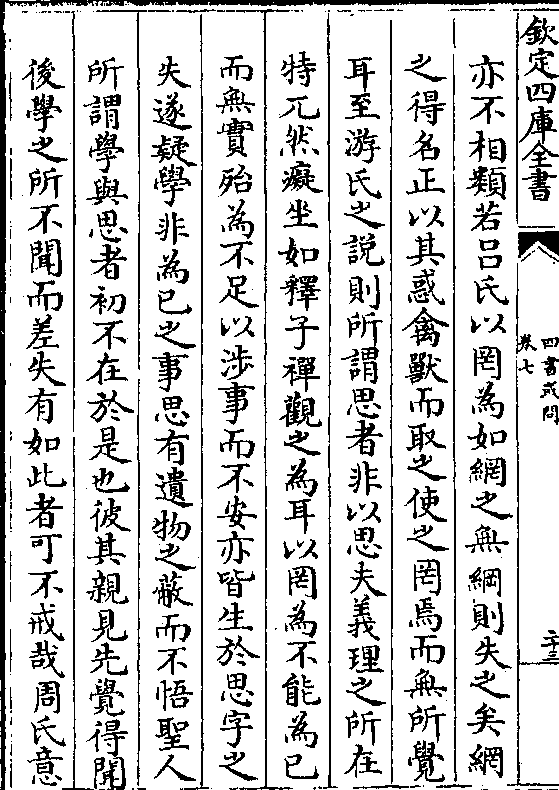 欽定四庫全書
四書或問
卷七
二十三
亦不相類若吕氏以罔為如網之無綱則失之矣網
之得名正以其惑禽獸而取之使之罔焉而無所覺
耳至游氏之說則所謂思者非以思夫義理之所在
特兀然癡坐如釋子禪觀之為耳以罔為不能為已
而無實殆為不足以涉事而不安亦皆生於思字之
失遂疑學非為已之事思有遺物之蔽而不悟聖人
所謂學與思者初不在於是也彼其親見先覺得聞
後學之所不聞而差失有如此者可不戒哉周氏意